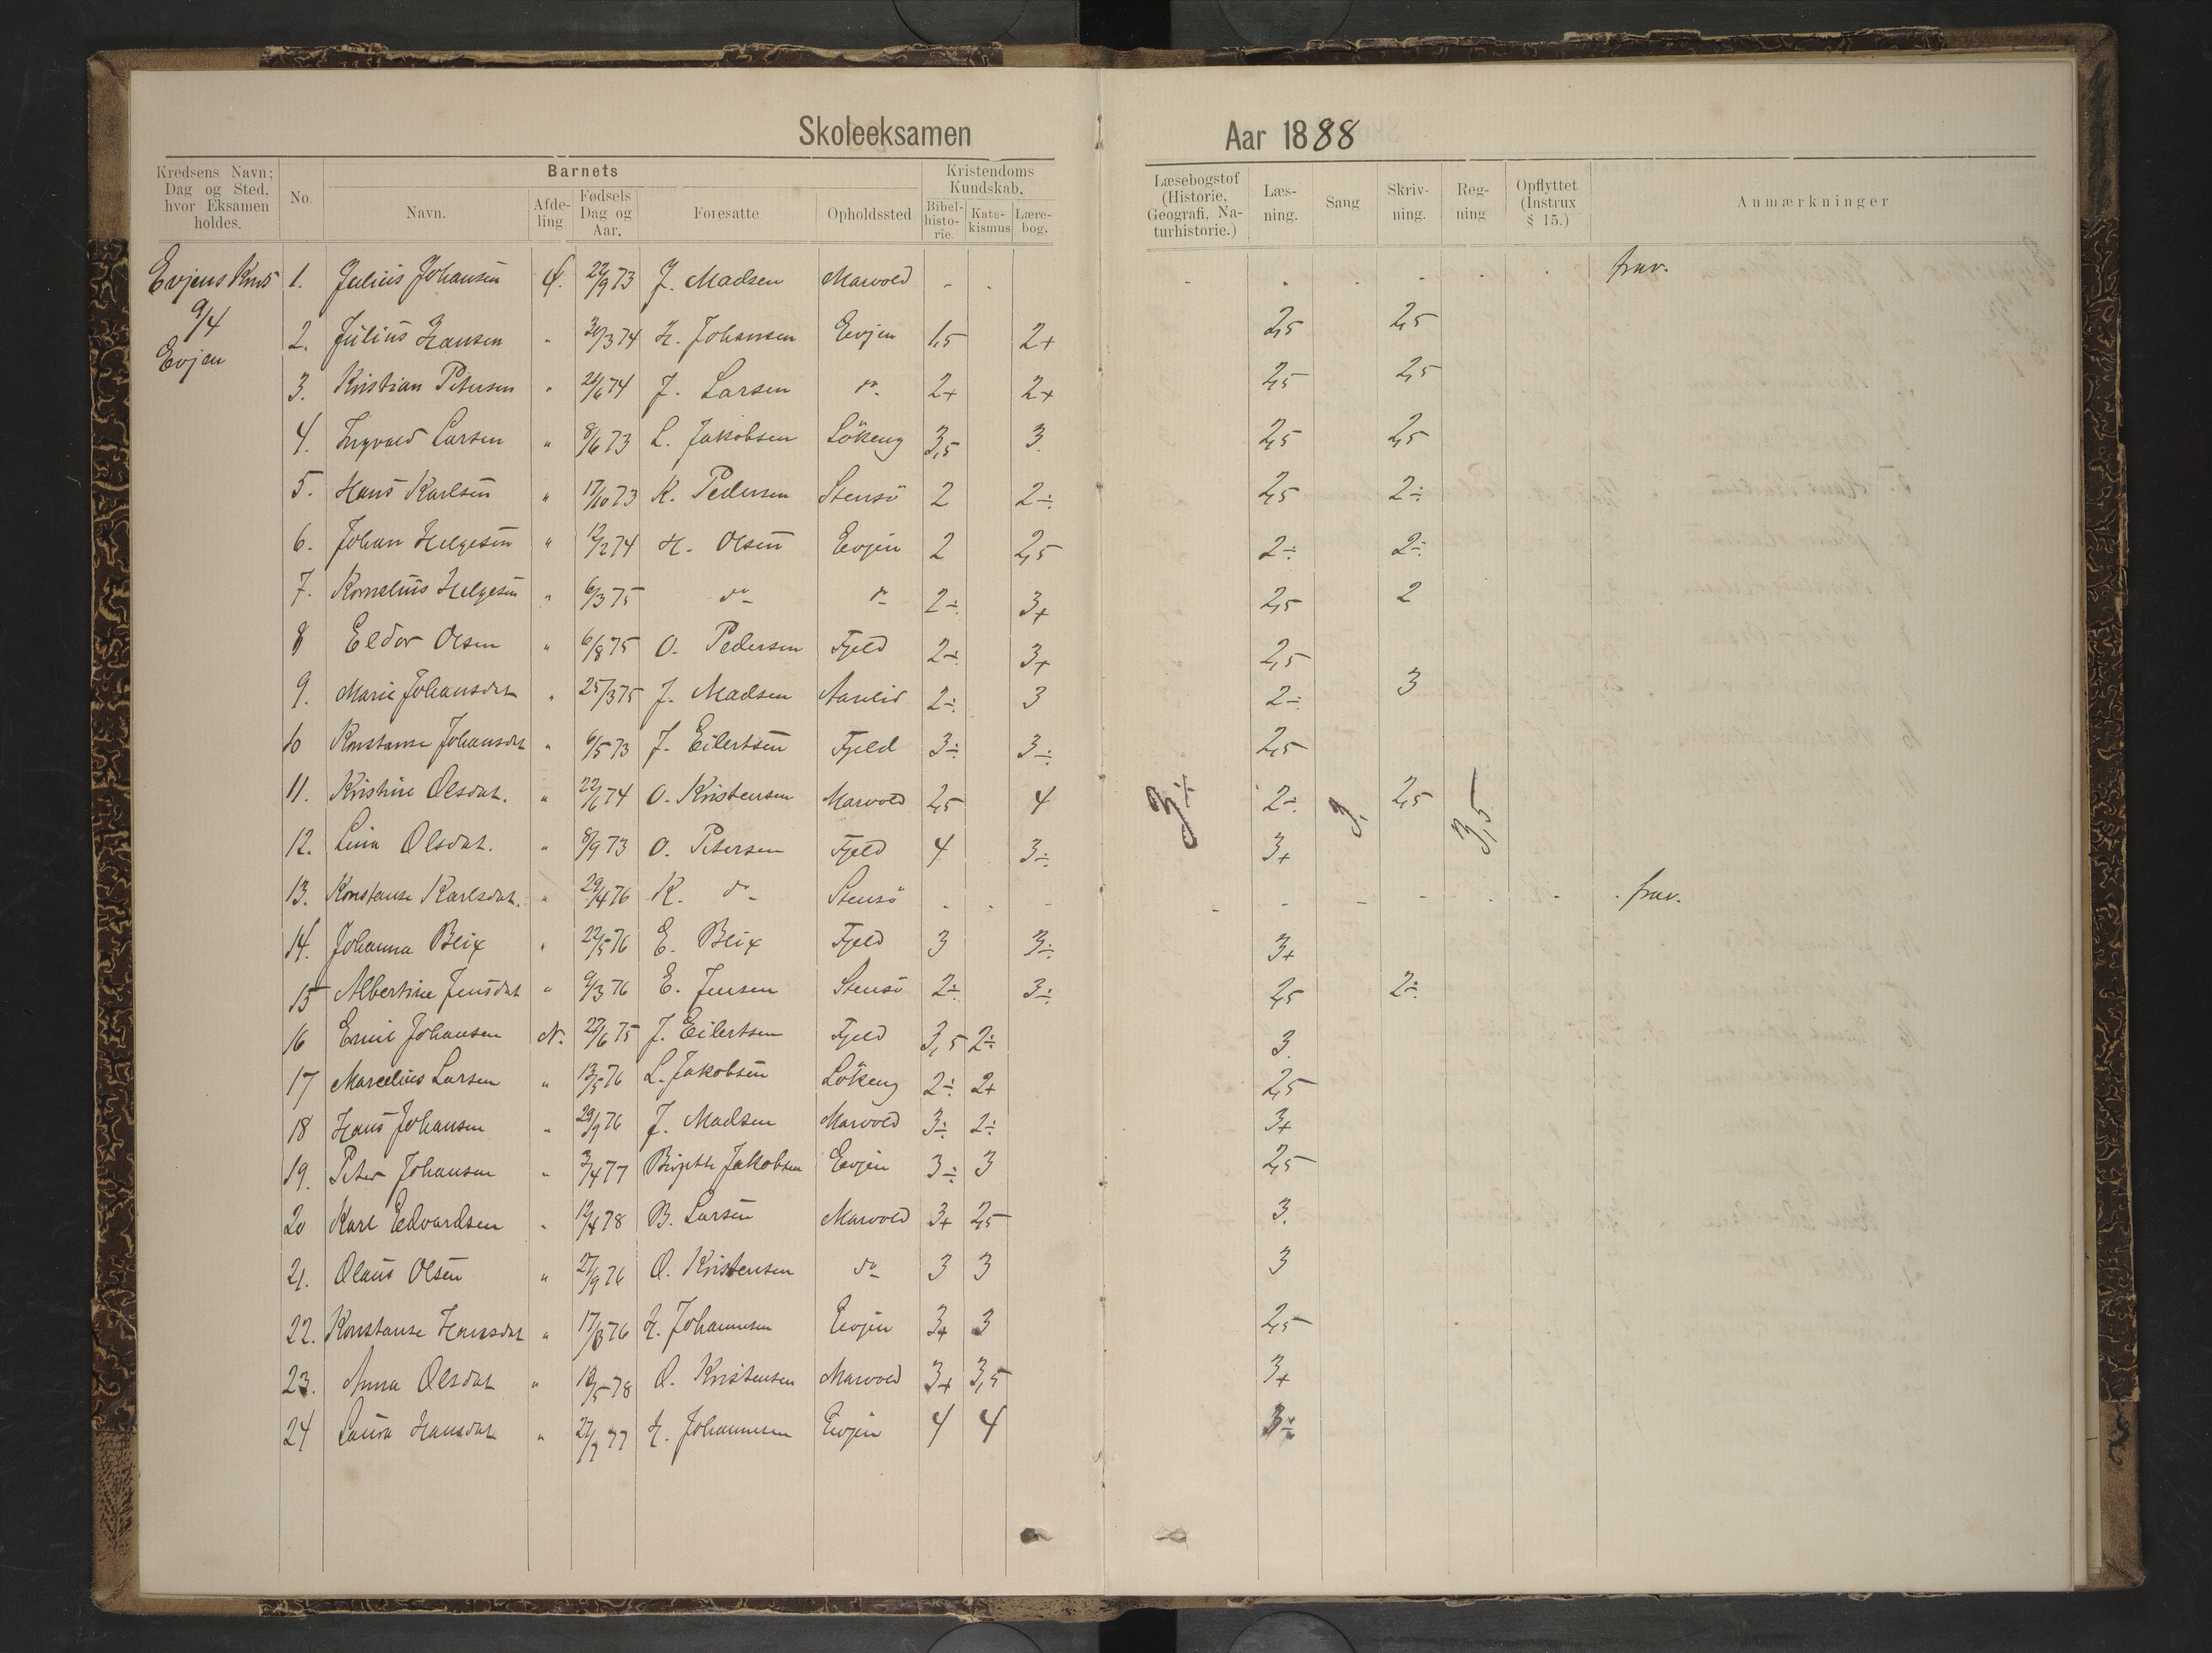 Skoleeksamen Aar 1888
Kredsens Navn; Dag og Sted, hvor Eksamen holdes. No. Barnets Navn. Afdeling Fødsels Dag og Aar. Foresatte Opholdssted Kristendoms Kundskab. Bibelhistorie. Katekismus Lærebog. Læsebogstof (Historie, Geografi, Naturhistorie.) Læsning. Sang Skrivning. Regning Opflyttet (Instrux § 15.) Anmærkninger
Evjens Kreds 1. Julius Johansen Ø. 22/9 73 J. Madsen Marvold - . - . . . . . frav.
9/4
2. Julius Hansen " 30/3 74 H. Johansen Evjen 1,5 2+ 2,5 2,5
Evjen
3. Kristian Petersen " 24/6 74 J. Larsen do. 2+ 2+ 2,5 2,5
4. Ingvald Larsen " 8/6 73 L. Jakobsen Lökeng 3,5 3. 2,5 2,5
5. Hans Karlsen " 17/10 73 K. Pedersen Stensö 2 2÷ 2,5 2÷
6. Johan Helgesen " 12/2 74 H. Olsen Evjen 2 2,5 2÷ 2÷
7. Kornelius Helgesen " 6/3 75 do do 2÷ 3+ 2,5 2
8 Eldor Olsen " 6/8 75 O. Pedersen Fjeld 2÷ 3+ 2,5
9. Marie Johansdat " 25/3 75 J. Madsen Aaselid 2÷ 3 2÷ 3
10 Konstanse Johansdat " 6/5 73 J. Eilertsen Fjeld 3÷ 3÷ 2,5
11. Kristine Olsdat. " 22/6 74 O. Kristensen Marvold 2,5 4 3÷ 2÷ 3. 2,5 3,5
12. Lina Olsdat. " 8/9 73 O. Petersen Fjeld 4 3÷ 3+
13. Konstanse Karlsdat. " 29/4 76 K. do Stensö . . - - - - - . . . frav.
14. Johanna Blix " 22/5 76 E. Blix Fjeld 3 3÷ 3+
15 Albertine Jensdat " 9/3 76 E. Jensen Stensö 2÷ 3÷ 2,5 2÷
16 Emil Johansen N. 27/6 75 J. Eilertsen Fjeld 3,5 2÷ 3.
17 Marcelius Larsen " 13/5 76 L. Jakobsen Lökeng 2÷ 2+ 2,5
18 Hans Johansen " 29/9 76 J. Madsen Marvold 3÷ 2÷ 3+
19. Peter Johansen " 3/4 77 Birgitte Jakobsen Evjen 3÷ 3 2,5
20 Karl Edvardsen " 12/4 78 B. Larsen Marvold 3+ 2,5 3.
21. Olaus Olsen " 27/9 76 O. Kristensen do 3 3 3
22. Konstanse Hansdat " 17/3 76 H. Johannesen Evjen 3+ 3 2,5
23. Anna Olsdat " 18/5 78 O. Kristensen Marvold 3+ 3,5 3+
24 Laura Hansdat " 27/7 77 H. Johannesen Evjen 4 4 3÷